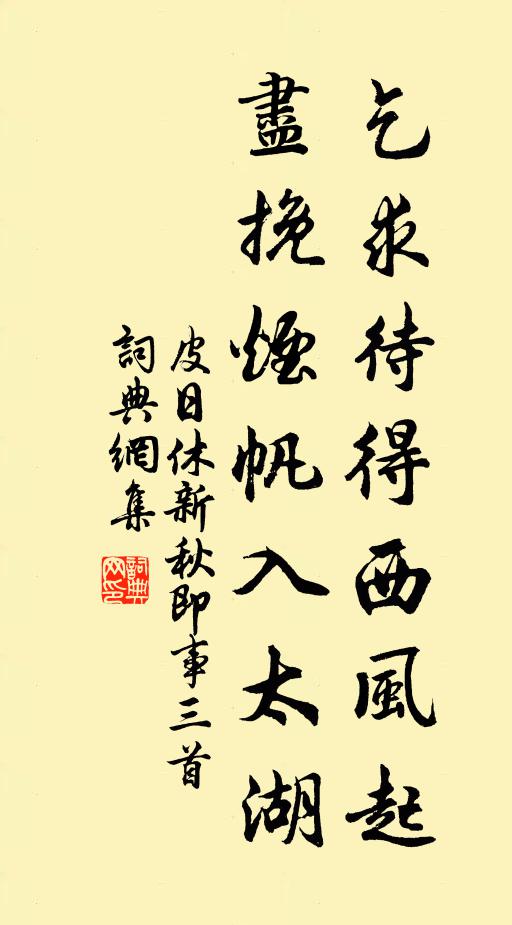 乞求待得西風起
盡挽煙帆入太湖
皮日休新秋即事三首
詞典網集
詞典網印